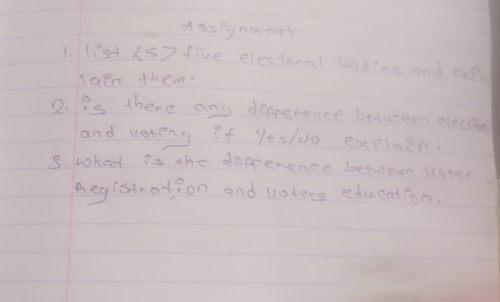 Assignment
1. list {5> five electoral bodies and exp-
lain them.
2. is there any difference between election
and voting if Yes/No explain.
3. what is the difference between voter
Registration and voters education.